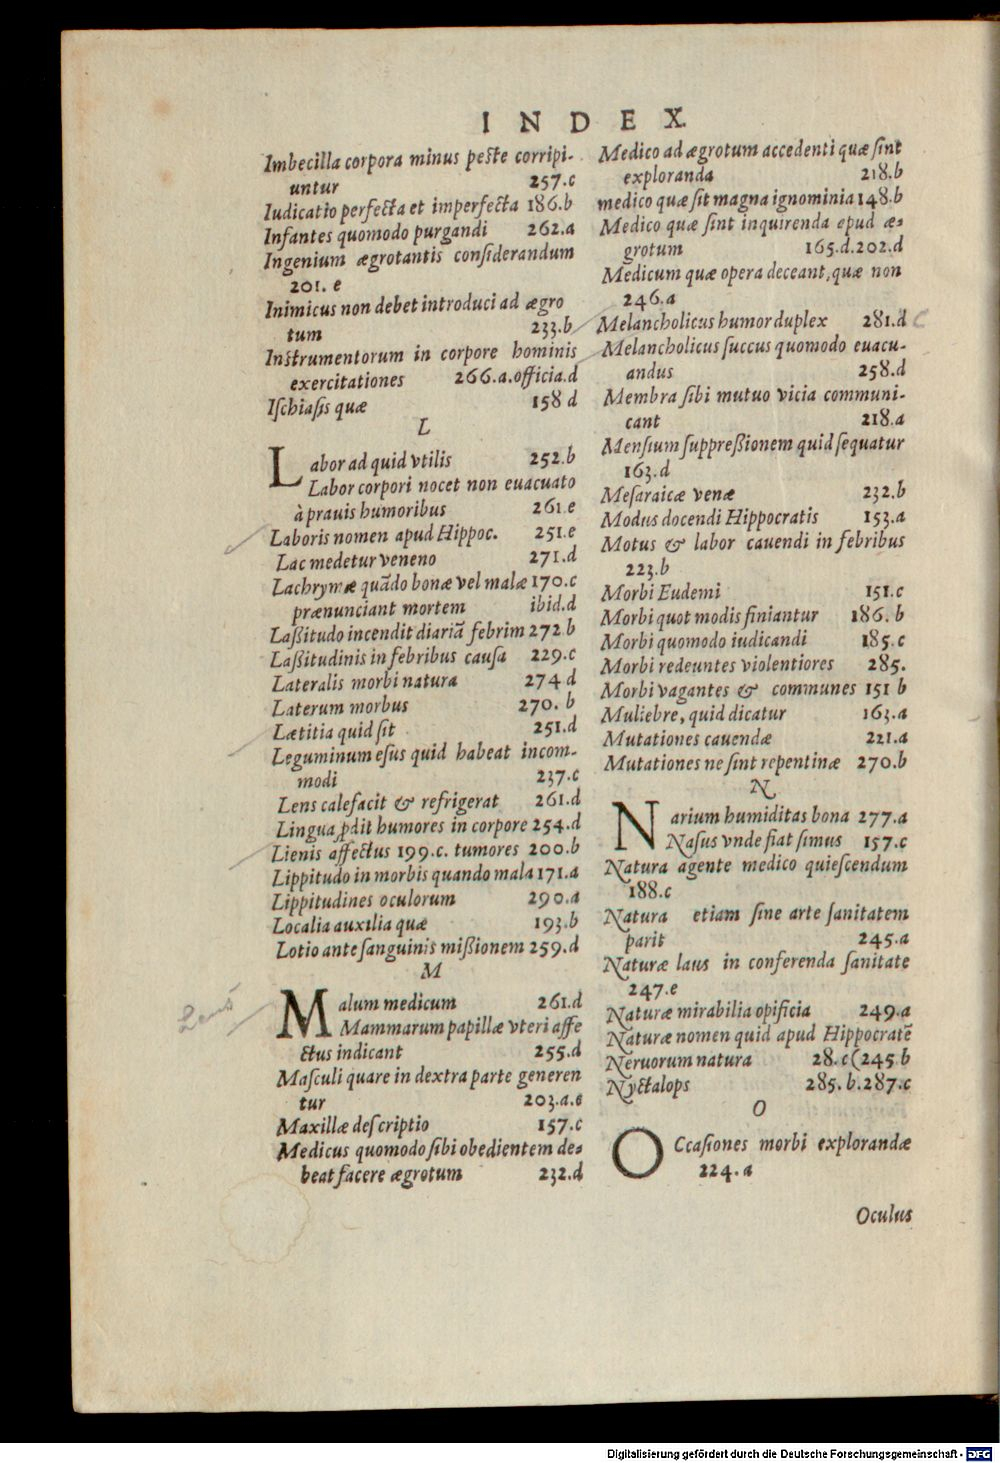 INDEX
Imbecilla corpora minus peste corripi-
untur 257.c
Iudicatio perfecta et imperfecta 186.b
Infantes quomodo purgandi 262.a
Ingenium ægrotantis considerandum
201. e
Inimicus non debet introduci ad ægro
tum 233.b
Instrumentorum in corpore hominis
exercitationes 266.a.officia.d
Ischiasis quæ 158 d
L
Labor ad quid vtilis 252.b
Labor corpori nocet non euacuato
à prauis humoribus 261.e
Laboris nomen apud Hippoc. 251.e
Lac medetur veneno 271.d
Lachrymæ quãdo bonæ vel malæ 170.c
prænunciant mortem ibid.d
Laßitudo incendit diariã febrim 272 b
Laßitudinis in febribus causa 229.c
Lateralis morbi natura 274 d
Laterum morbus 270. b
Lætitia quid sit 251.d
Leguminum esus quid habeat incom-
modi 237.c
Lens calefacit & refrigerat 261.d
Lingua ꝓdit humores in corpore 254.d
Lienis affectus 199.c. tumores 200.b
Lippitudo in morbis quando mala 171.a
Lippitudines oculorum 290.a
Localia auxilia quæ 193.b
Lotio ante sanguinis mißionem 259.d
M
Malum medicum 261.d
Mammarum papillæ vteri affe
ctus indicant 255.d
Masculi quare in dextra parte generen
tur 203.a.e
Maxillæ descriptio 157.c
Medicus quomodo sibi obedientem de-
beat facere ægrotum 232.d
Medico ad ægrotum accedenti quæ sint
exploranda 218.b
medico quæ sit magna ignominia 148.b
Medico quæ sint inquirenda epud æ-
grotum 165.d.202.d
Medicum quæ opera deceant, quæ non
246.a
Melancholicus humor duplex 281.d c
Melancholicus succus quomodo euacu-
andus 258.d
Membra sibi mutuo vicia communi-
cant 218.a
Mensium suppreßionem quid sequatur
163.d
Mesaraicæ venæ 232.b
Modus docendi Hippocratis 153.a
Motus & labor cauendi in febribus
223.b
Morbi Eudemi 151.c
Morbi quot modis finiantur 186. b
Morbi quomodo iudicandi 185.c
Morbi redeuntes violentiores 285.
Morbi vagantes & communes 151 b
Muliebre, quid dicatur 163.a
Mutationes cauendæ 221.a
Mutationes ne sint repentinæ 270.b
N
Narium humiditas bona 277.a
Nasus vnde fiat simus 157.c
Natura agente medico quiescendum
188.c
Natura etiam sine arte sanitatem
parit 245.a
Naturæ laus in conferenda sanitate
247.e
Naturæ mirabilia opificia 249.a
Naturæ nomen quid apud Hippocratẽ
Neruorum natura 28. c (245.b
Nyctalops 285. b.287.c
O
OCcasiones morbi explorandæ
224. a
Oculus
Digitalisierung gefördert durch die Deutsche Forschungsgemeinschaft - DFG